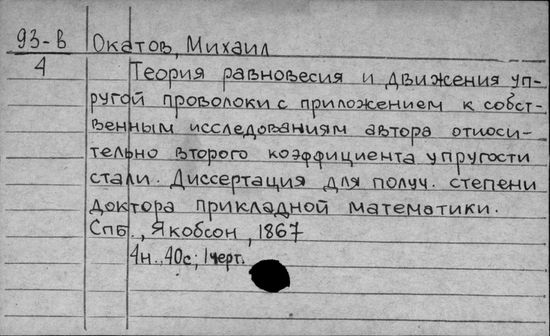 93-В Окатов, Михаил
4 Теория равновесия и движения уп-
ругой проволоки с приложением к собст-
венным исследованиям автора относи-
тельно второго коэффициента упругости
стали. Диссертация для получ. степени
доктора прикладной математики.
Спб., Якобсон, 1867
4н., 40с; 1черт.